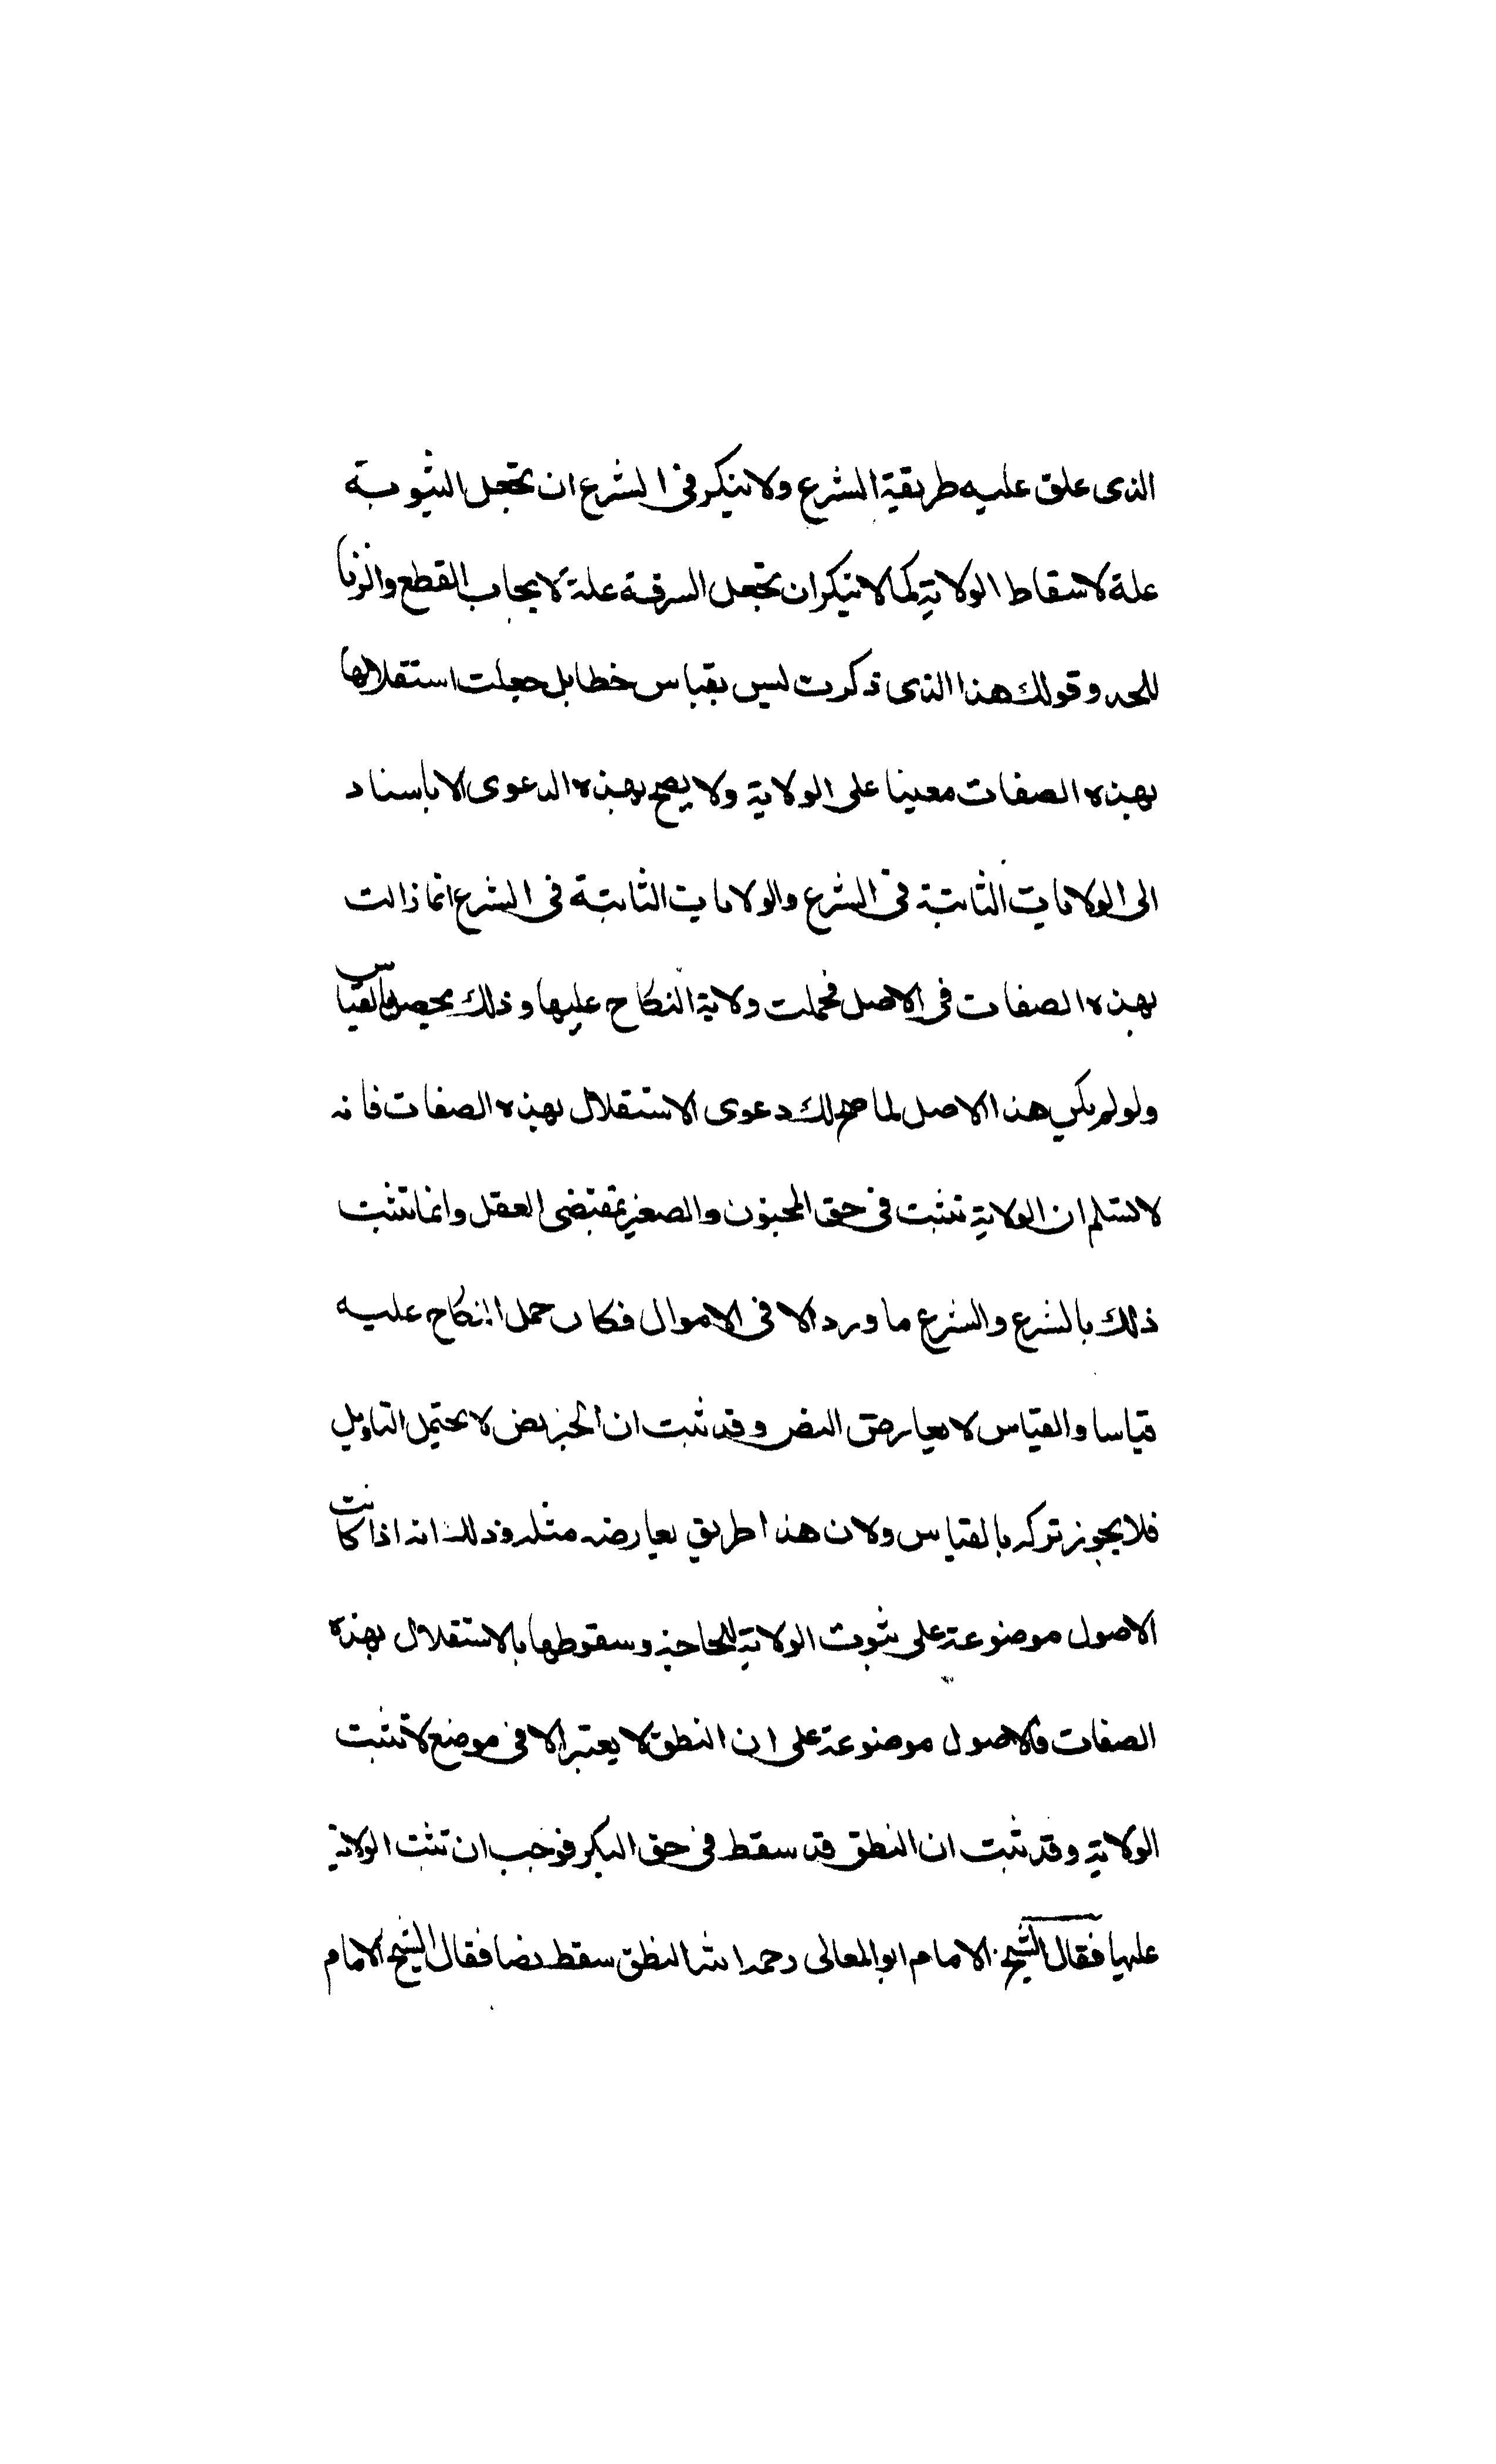 الذى علق عليه طريقة الشرع ولا ينكر فى الشرع ان تجعل الثيوبة
علة لاسقاط الولاية كما لا ينكر ان تجعل السرقة علة لايجاب القطع والزنا
للحد وقولك هذا الذى ذكرت ليس بقياس خطا بل جعلت استقلالها
بهذه الصفات معينا على الولاية ولا يصح بهذه الدعوى الا باسناد
الى الولايات الثابتة فى الشرع والولايات الثابتة فى الشرع انما زالت
بهذه الصفات فى الاصل فحملت ولاية النكاح عليها وذلك يحصل بالقياس
ولو لم يكن هذا الاصل لما صح لك دعوى الاستقلال بهذه الصفات فانه
لا نسلم ان الولاية تثبت فى حق المجنون والصغير بمقتضى العقل وانما تثبت
ذلك بالشرع والشرع ما ورد الا فى الاموال فكان حمل النكاح عليه
قياسا والقياس لا يعارض النص وقد ثبت ان الخبر نص لا يحتمل التاويل
فلا يجوز تركه بالقياس ولان هذا طريق يعارضه مثله وذلك انه اذا كانت
الاصول موضوعة على ثبوت الولاية للحاجة وسقوطها بالاستقلال بهذه
الصفات فالاصول موضوعة على ان النطق لا يعتبر الا فى موضع لا تثبت
الولاية وقد ثبت ان النطق قد سقط فى حق البكر فوجب ان تثبت الولاية
عليها فقال الشيخ الامام ابو المعالى رحمه الله النطق سقط نصا فقال الشيخ الامام